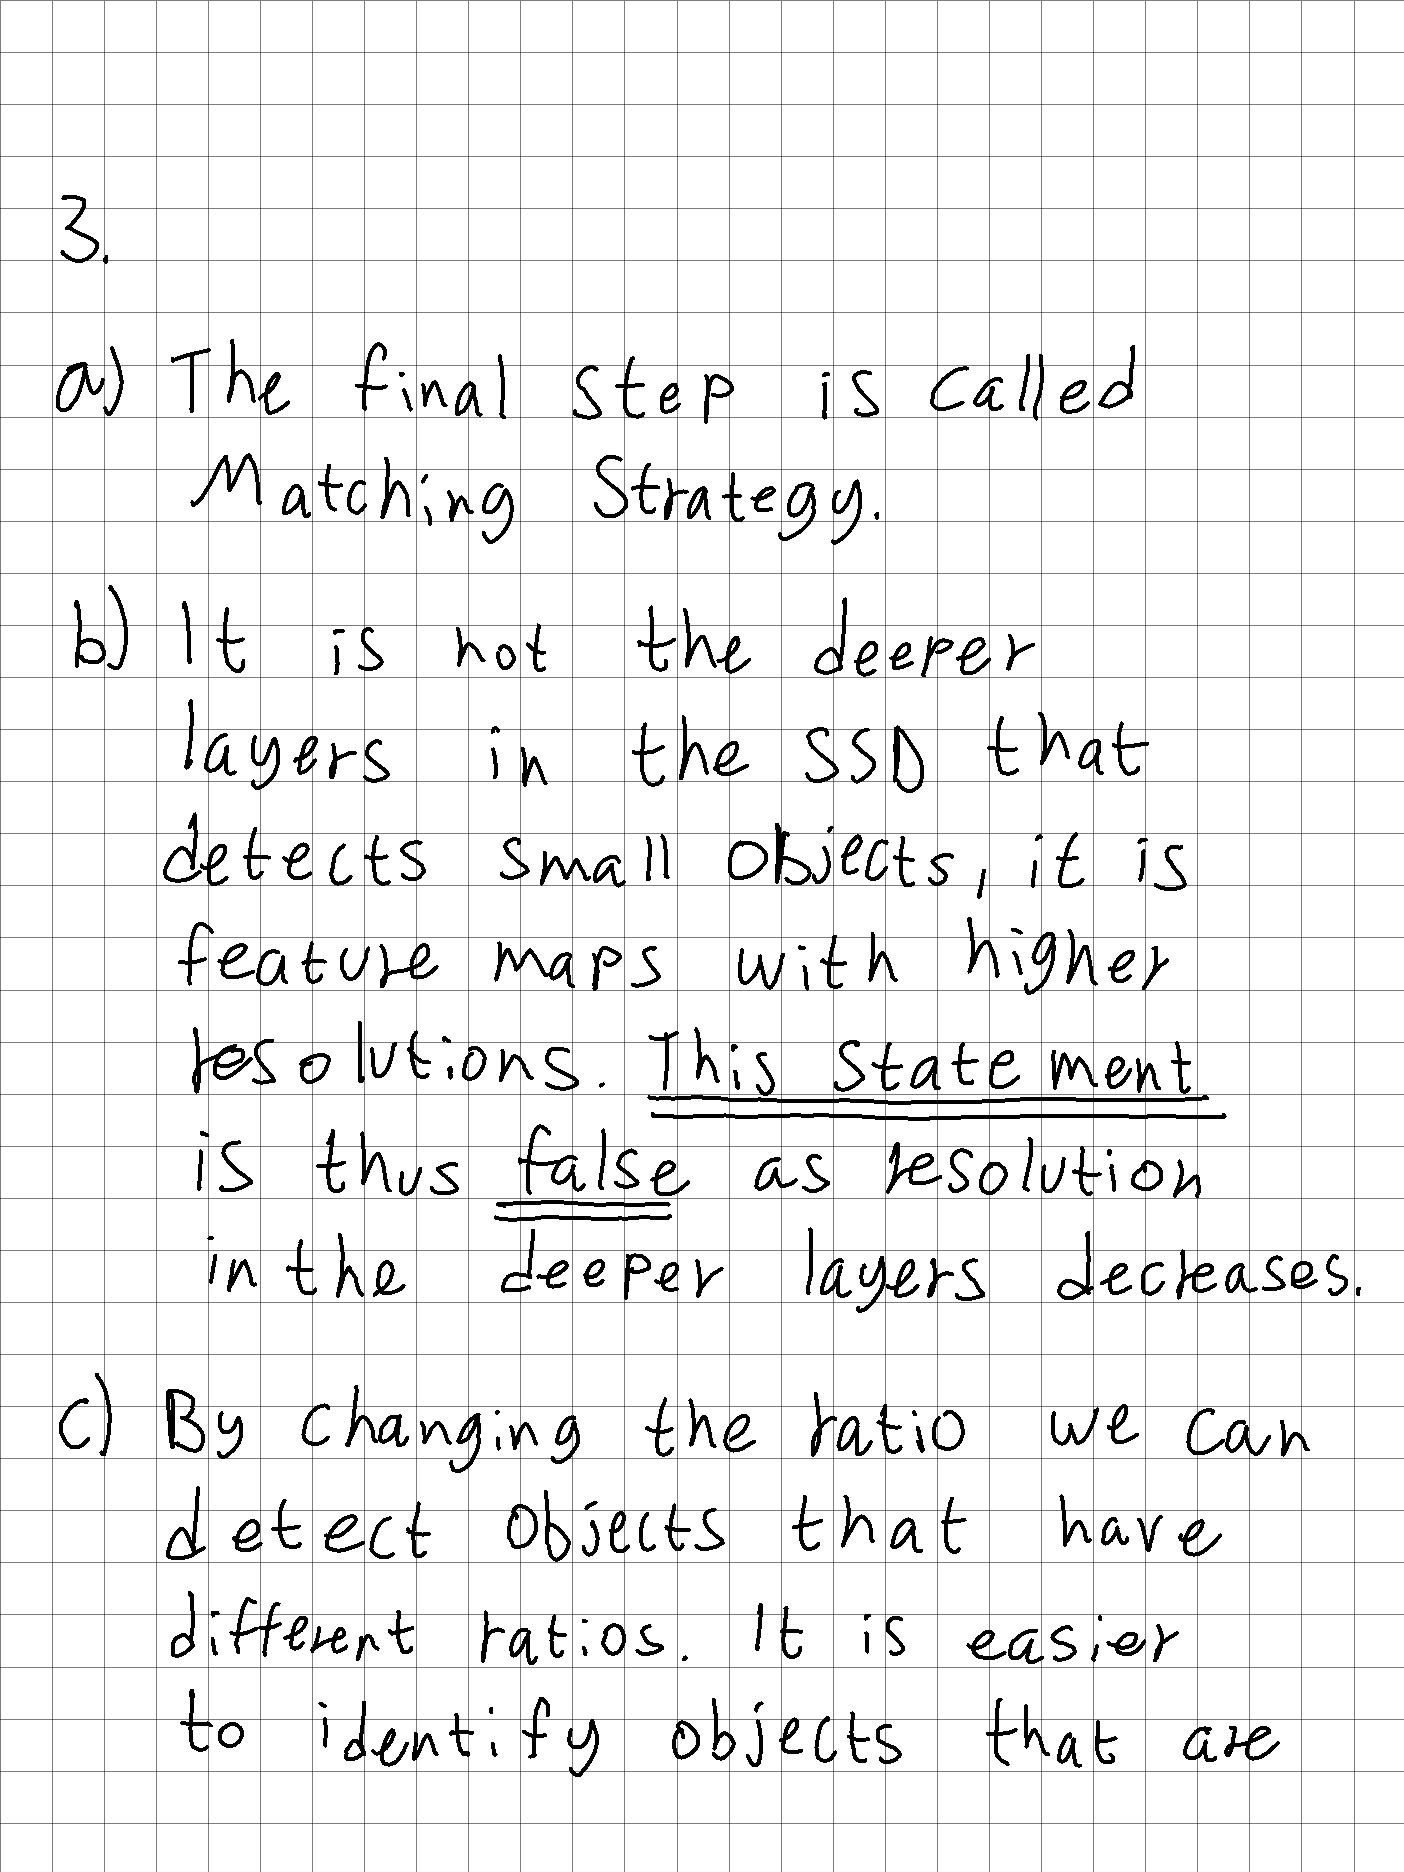 3.
a) The final step is called
Matching Strategy.
b) It is not the deeper
layers in the SSD that
detects small objects, it is
feature maps with higher
resolutions. This statement
is thus false as resolution
in the deeper layers decreases.
c) By changing the ratio we can
detect objects that have
different ratios. It is easier
to identify objects that are